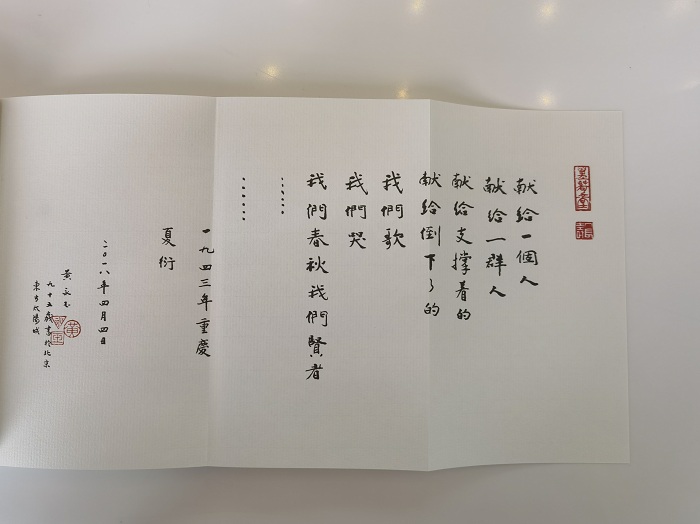 献给一個人
献给一群人
献给支撑着的
献给倒下了的
我們歌
我們哭
我們春秋我們賢者
……
……
一九四三年重慶
夏衍
二〇一八年四月四日
黄永玉
九十五歲書於北京
東方太陽城